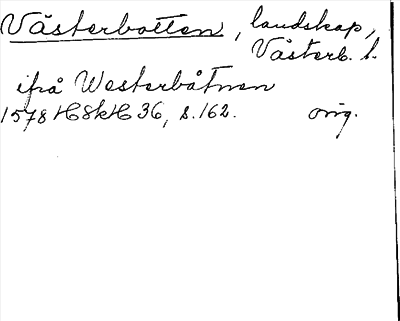 Västerbotten, landskap,
Västerb. l.
ifrå Westerbåtnen
1578 HSkH 36, s. 162. orig.